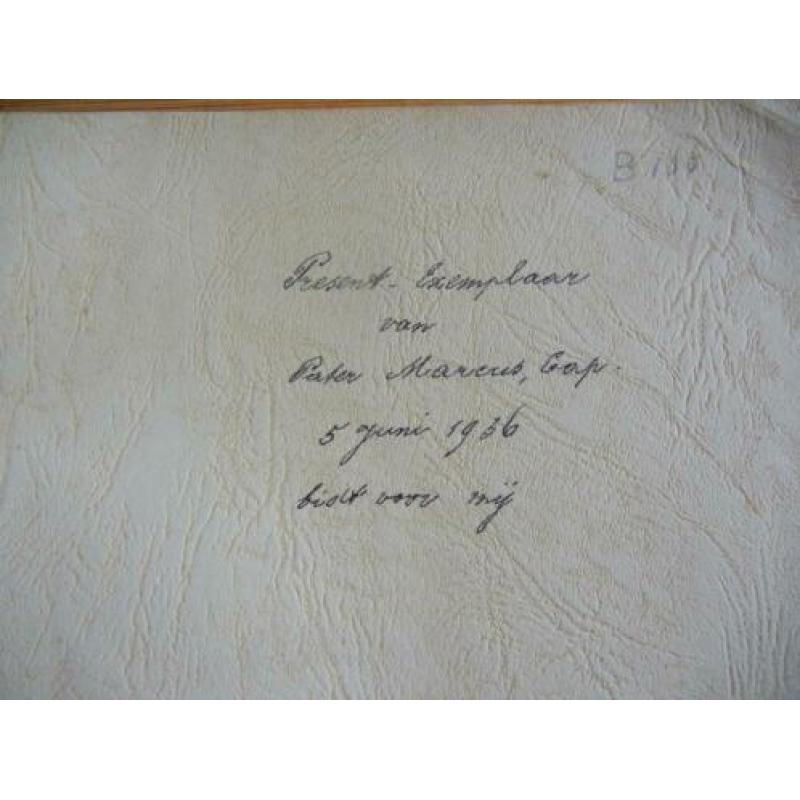 Present-Exemplaar
van
Pater Marcus, Cap.
5 juni 1936
bidt voor mij